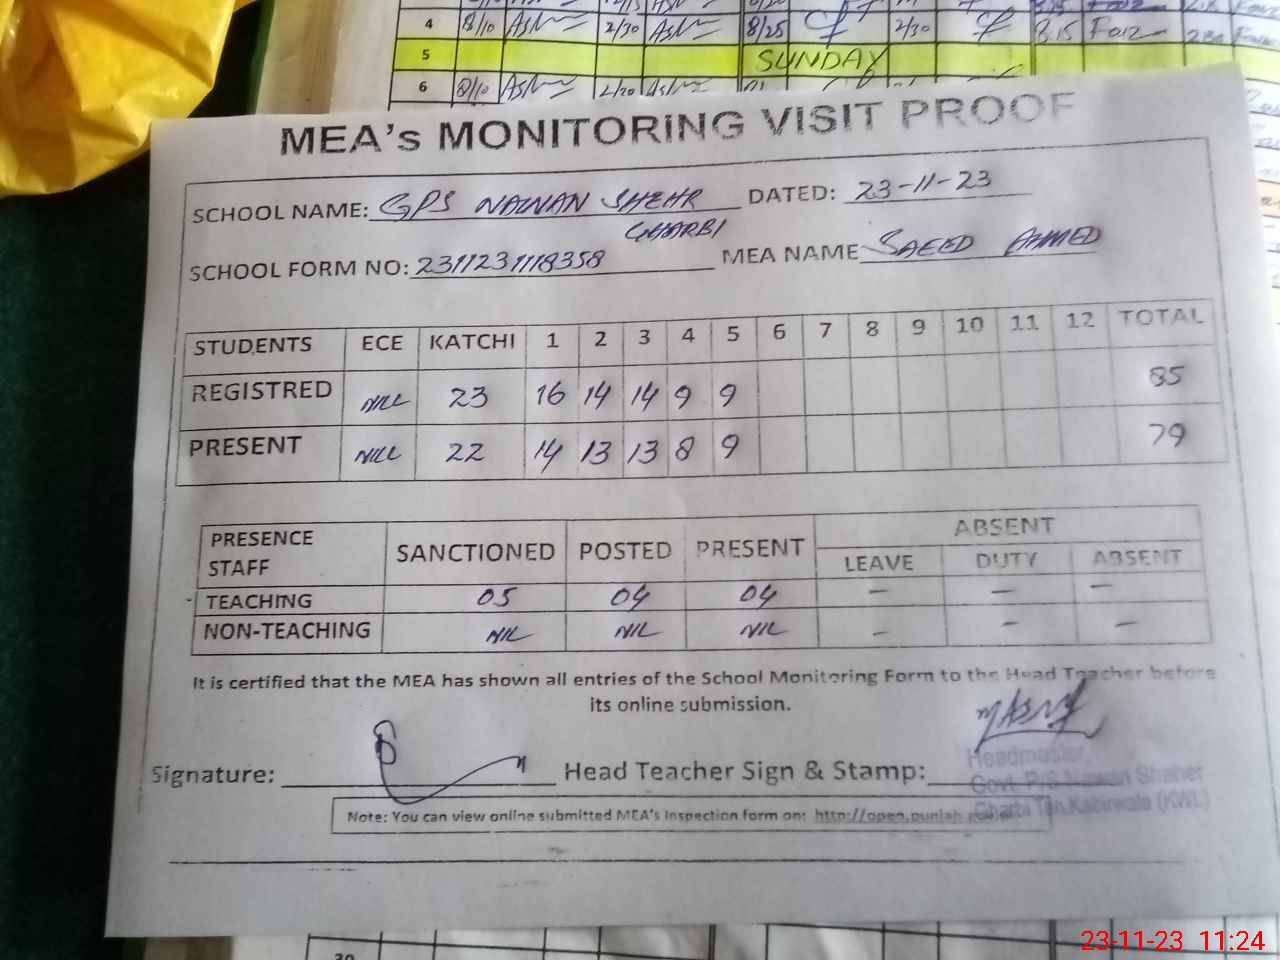 4 8/10 2/30 8/25 2/30 8.15
5 SUNDAY
6 8/10 2/20
MEA's MONITORING VISIT PROOF
SCHOOL NAME: GPS NAWAN SHEHR DATED: 23-11-23
GHARBI
SCHOOL FORM NO: 2311231118358 MEA NAME SAEED AHMED
STUDENTS ECE KATCHI 1 2 3 4 5 6 7 8 9 10 11 12 TOTAL
REGISTRED NILL 23 16 14 14 9 9 85
PRESENT NILL 22 14 13 13 8 9 79
PRESENCE STAFF SANCTIONED POSTED PRESENT ABSENT
LEAVE DUTY ABSENT
TEACHING 05 04 04 — — —
NON-TEACHING NIL NIL NIL — — —
It is certified that the MEA has shown all entries of the School Monitoring Form to the Head Teacher before
its online submission.
Signature: Head Teacher Sign & Stamp:
Headmaster,
Govt. P/S Nawan Shaher
Gharbi Teh.Kabirwala (KWL)
Note: You can view online submitted MEA's Inspection form on: http://open.punjab.
30
23-11-23 11:24